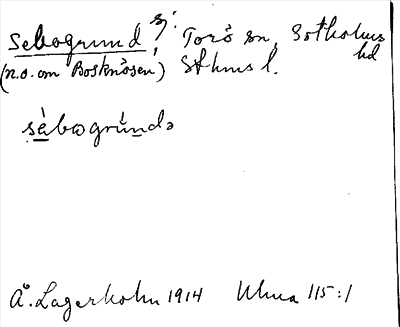 Sebogrund, i Torö sn, Sotholms hd
(n.o. om Bosknösen) Sthms l.
sèbogrúndə
Å. Lagerholm 1914 Uhva 115:1